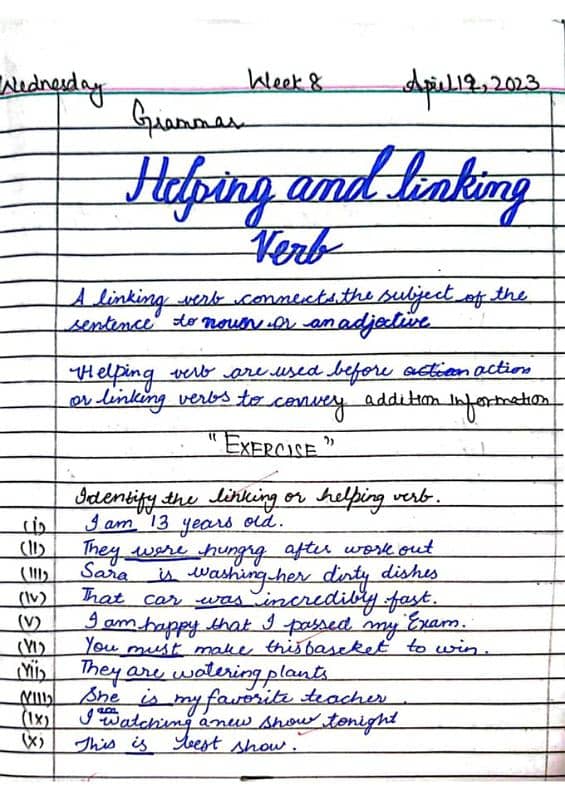 Wednesday Week 8 April 19, 2023
Grammar
Helping and linking
Verb
A linking verb connects the subject of the
sentence to noun or an adjective
Helping verb are used before action action
or linking verbs to convey addition Information
"EXERCISE"
Identify the linking or helping verb.
(i) I am 13 years old.
(II) They were hungry after work out
(III) Sara is washing her dirty dishes
(Iv) That car was incredibly fast.
(V) I am happy that I passed my Exam.
(VI) You must make this basket to win.
(Vii) They are watering plants
(VIII) She is my favorite teacher.
(Ix) I am watching a new show tonight
(x) This is best show.